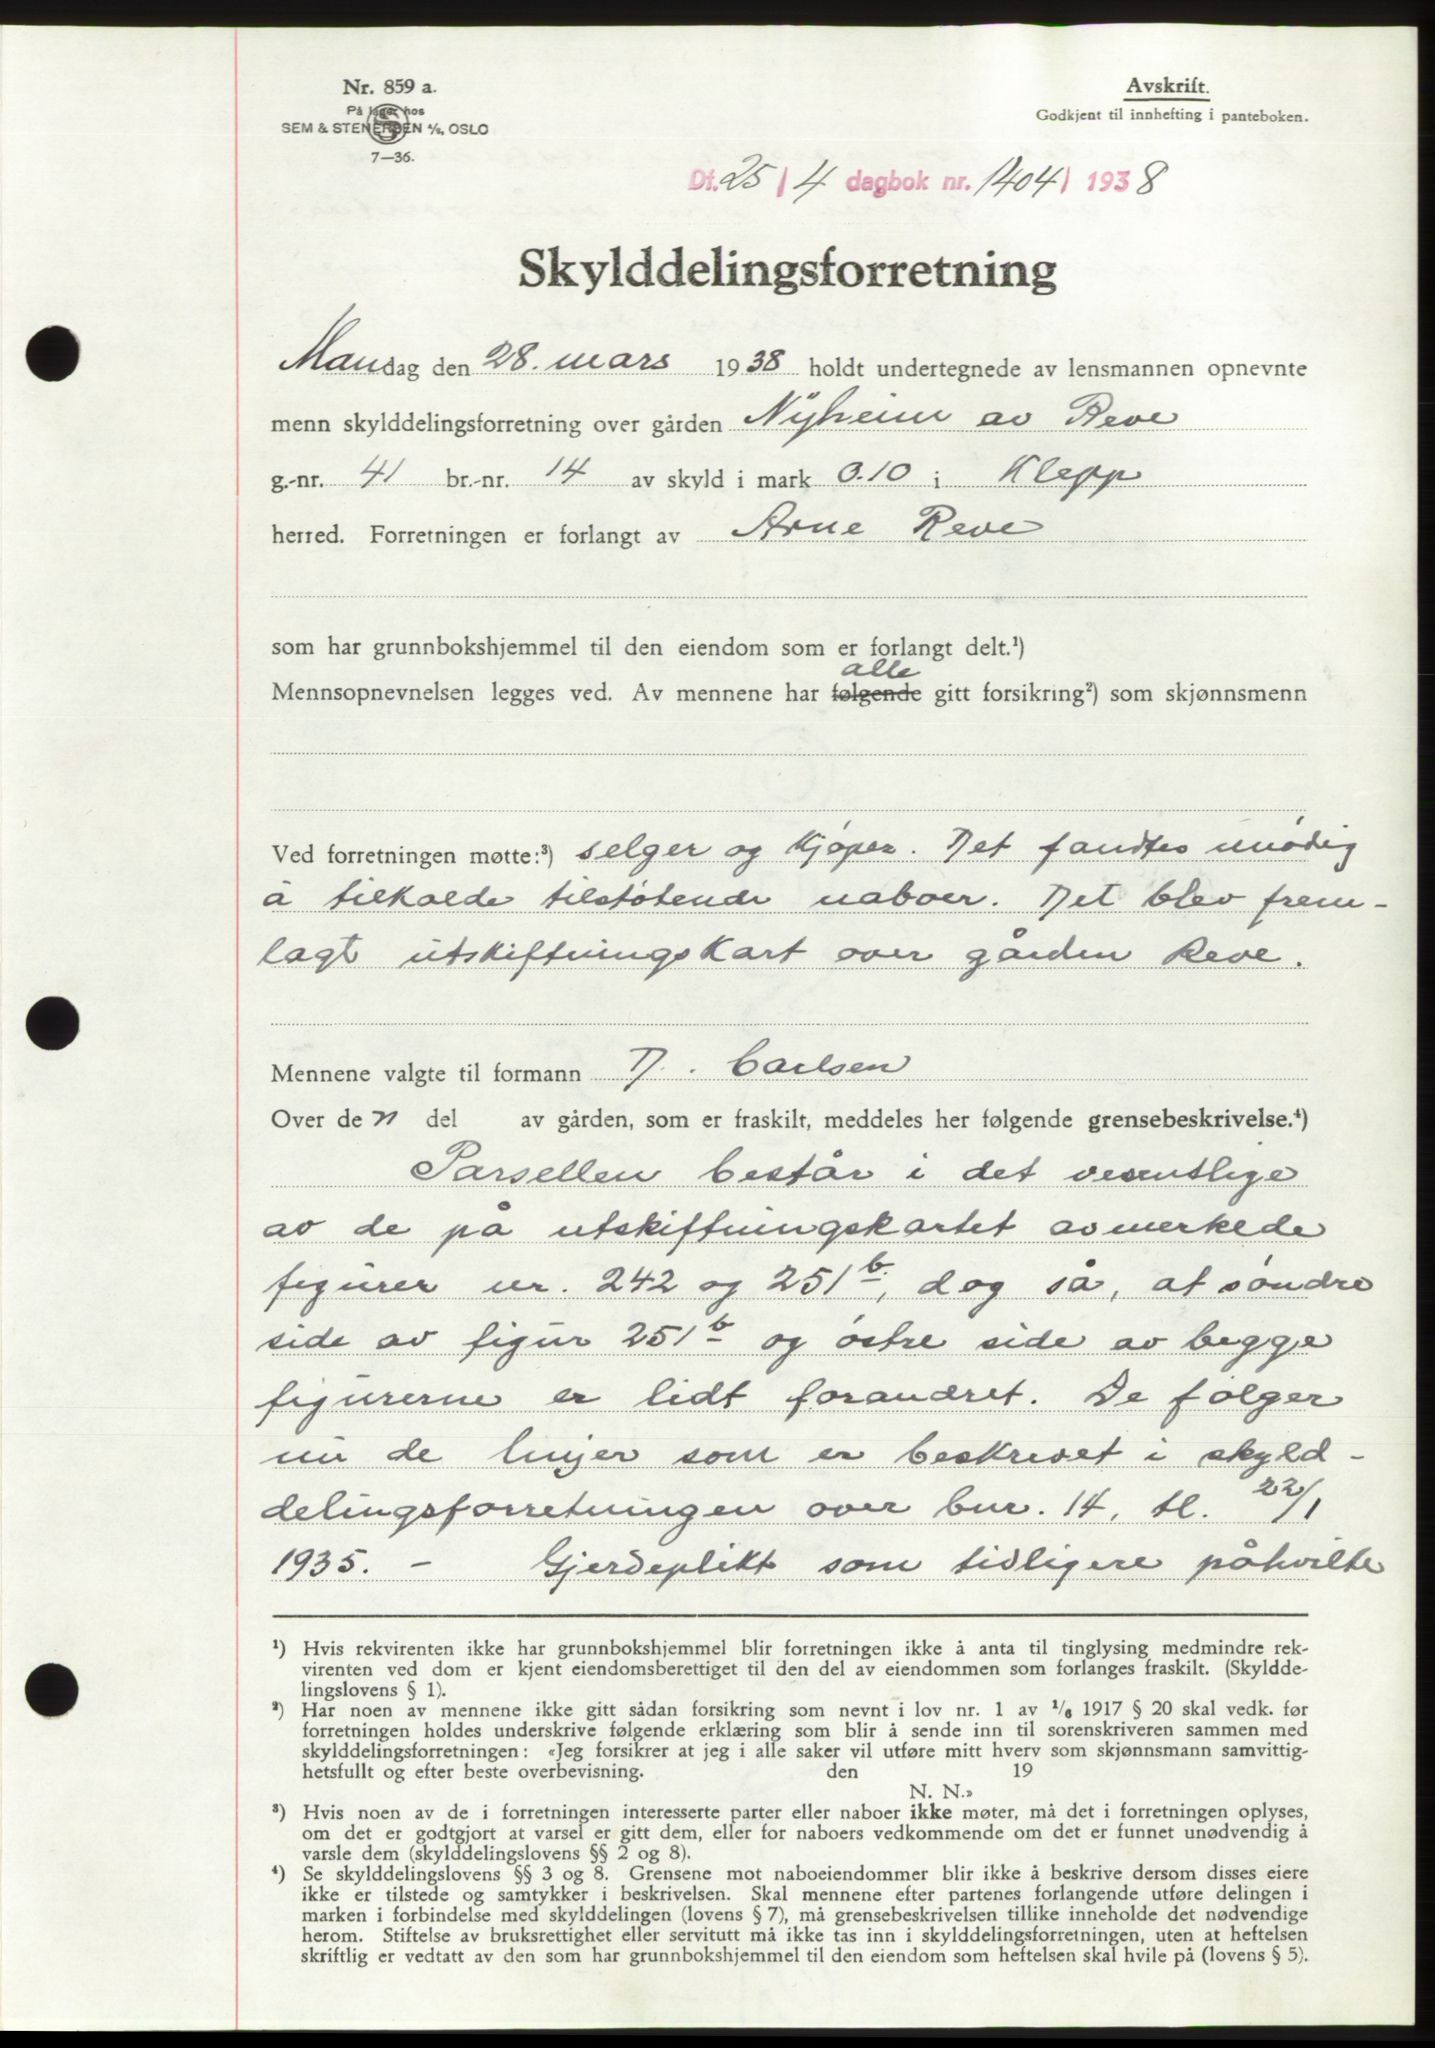 Nr. 859 a.
På lager hos
SEM & STENERSEN A/S, OSLO
7—36.
Avskrift.
Godkjent til innhefting i panteboken.
Df. 25/4 dagbok nr. 1404/1938
Skylddelingsforretning
Mandag den 28. mars 1938 holdt undertegnede av lensmannen opnevnte
menn skylddelingsforretning over gården Nyheim av Reve
g.-nr. 41 br.-nr. 14 av skyld i mark 0.10 i Klepp
herred. Forretningen er forlangt av Arne Reve
som har grunnbokshjemmel til den eiendom som er forlangt delt.¹)
alle
Mennsopnevnelsen legges ved. Av mennene har følgende gitt forsikring²) som skjønnsmenn
Ved forretningen møtte:³) selger og kjøper. Det fandtes unødig
å tilkalde tilstøtende naboer. Det blev frem-
lagt utskiftningskart over gården Reve.
Mennene valgte til formann D. Carlsen
Over de n del av gården, som er fraskilt, meddeles her følgende grensebeskrivelse.⁴)
Parsellen består i det vesentlige
av de på utskiftningskartet avmerkede
figurer nr. 242 og 251 b, dog så, at søndre
side av figur 251 b og østre side av begge
figurerne er lidt forandret. De følger
nu de linjer som er beskrevet i skyld-
delingsforretningen over bnr. 14, tl. 22/1
1935. - Gjerdeplikt som tidligere påhvilte
¹) Hvis rekvirenten ikke har grunnbokshjemmel blir forretningen ikke å anta til tinglysing medmindre rek-
virenten ved dom er kjent eiendomsberettiget til den del av eiendommen som forlanges fraskilt. (Skyldde-
lingslovens § 1).
²) Har noen av mennene ikke gitt sådan forsikring som nevnt i lov nr. 1 av 1/6 1917 § 20 skal vedk. før
forretningen holdes underskrive følgende erklæring som blir å sende inn til sorenskriveren sammen med
skylddelingsforretningen: «Jeg forsikrer at jeg i alle saker vil utføre mitt hverv som skjønnsmann samvittig-
hetsfullt og efter beste overbevisning. den 19
N. N.»
³) Hvis noen av de i forretningen interesserte parter eller naboer ikke møter, må det i forretningen oplyses,
om det er godtgjort at varsel er gitt dem, eller for naboers vedkommende om det er funnet unødvendig å
varsle dem (skylddelingslovens §§ 2 og 8).
⁴) Se skylddelingslovens §§ 3 og 8. Grensene mot naboeiendommer blir ikke å beskrive dersom disses eiere
ikke er tilstede og samtykker i beskrivelsen. Skal mennene efter partenes forlangende utføre delingen i
marken i forbindelse med skylddelingen (lovens § 7), må grensebeskrivelsen tillike inneholde det nødvendige
herom. Stiftelse av bruksrettighet eller servitutt må ikke tas inn i skylddelingsforretningen, uten at heftelsen
skriftlig er vedtatt av den som har grunnbokshjemmel til den eiendom som heftelsen skal hvile på (lovens § 5).